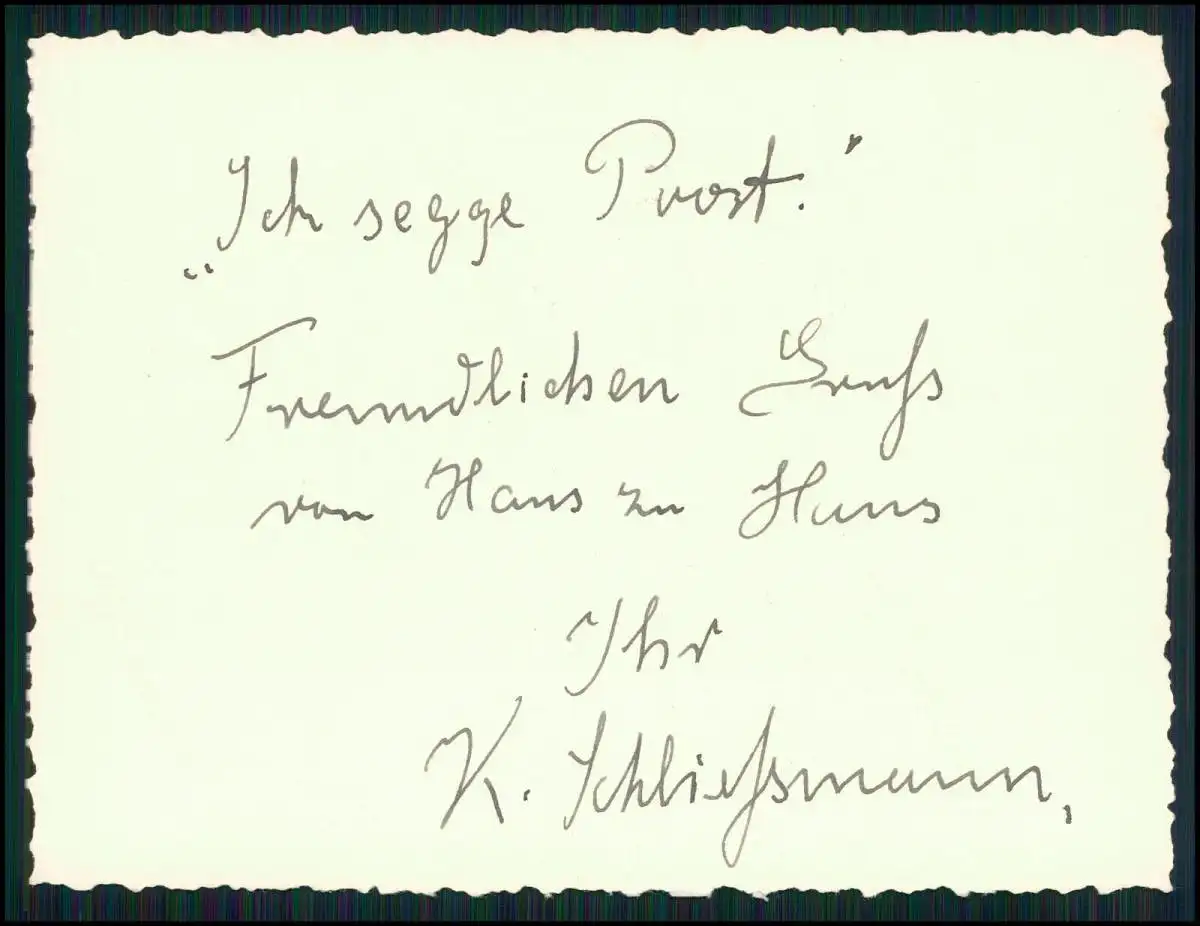 „Ich segge Prost."
Freundlichen Gruß
von Haus zu Haus
Ihr
K. Schließmann,